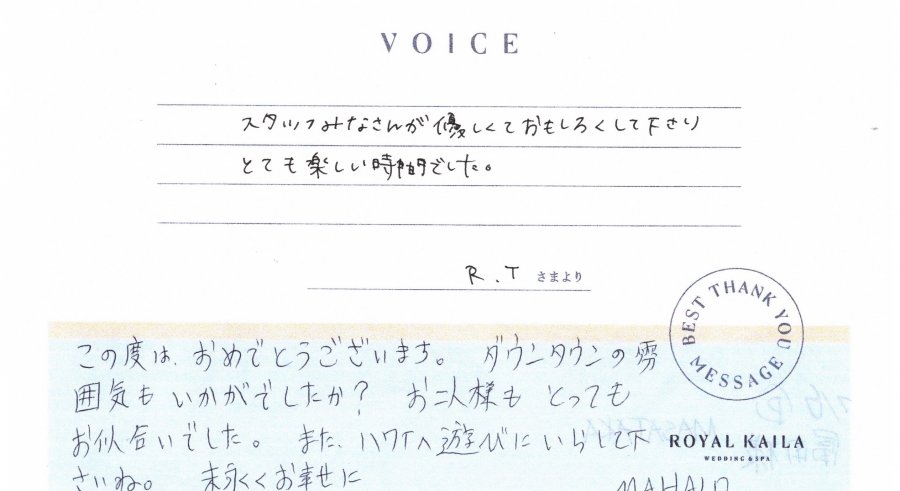 VOICE
スタッフみなさんが優しくておもしろくして下さり
とても楽しい時間でした。
R.T さまより
BEST THANK YOU MESSAGE
この度は、おめでとうございます。 ダウンタウンの雰
囲気もいかがでしたか? お二人様も とっても
お似合いでした。 また、ハワイへ遊びにいらして下
ROYAL KAILA
WEDDING & SPA
さいね。 末永くお幸せに
MAHALO